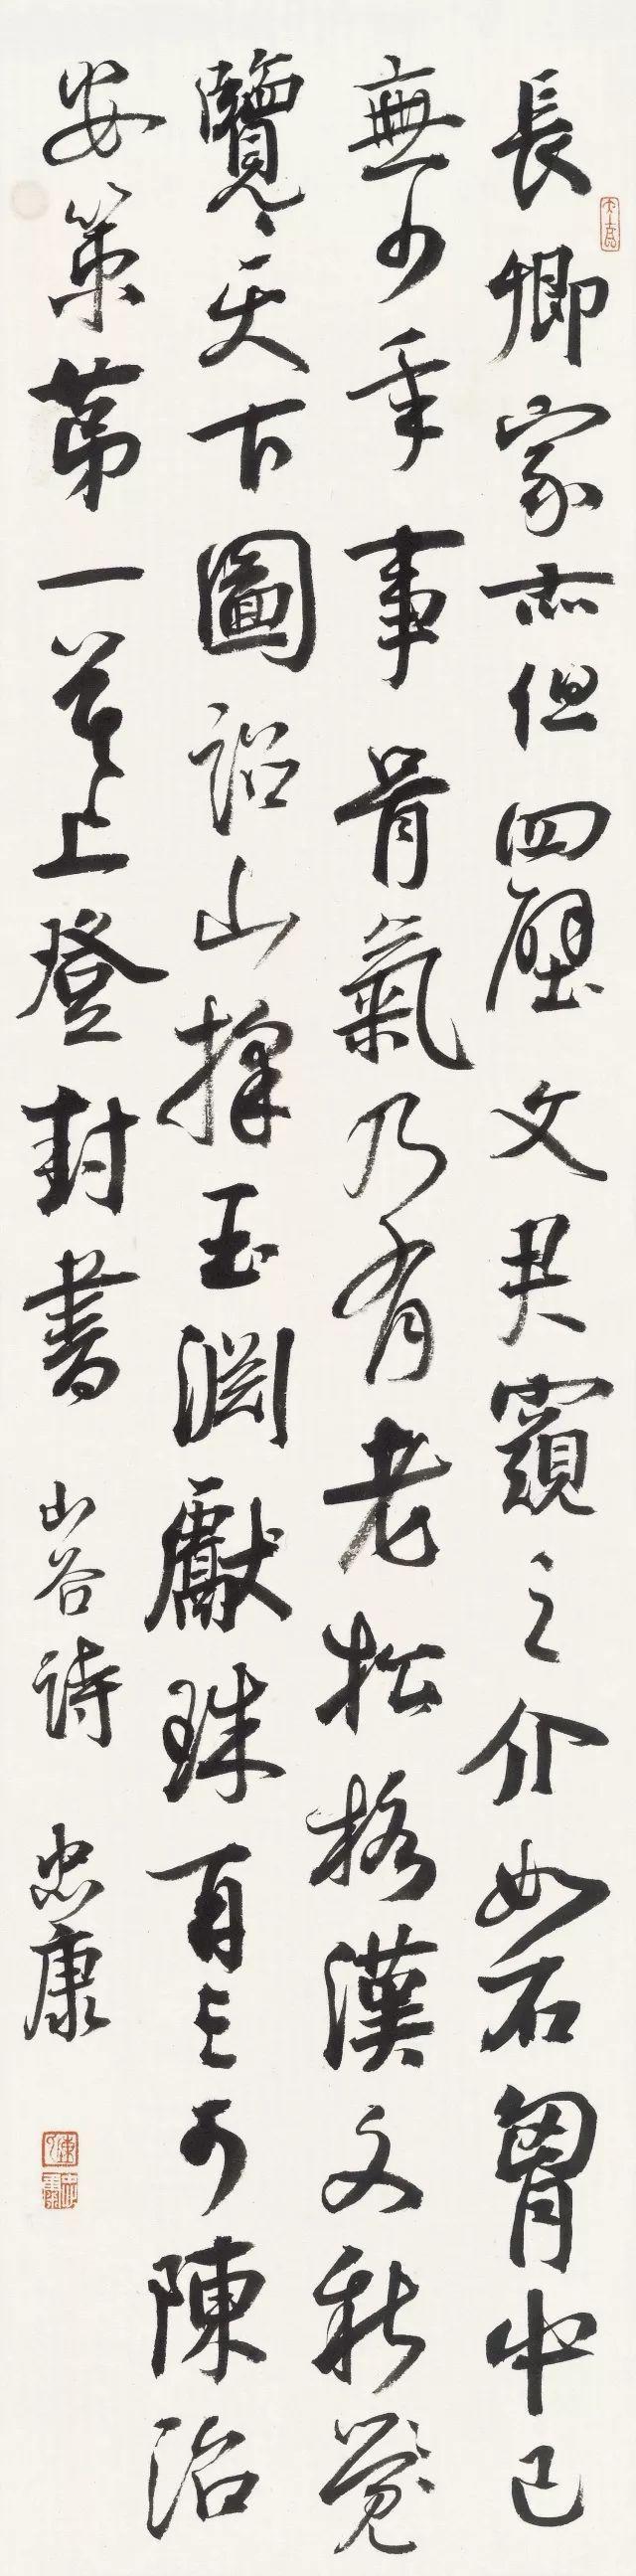 長卿家亦但四壁文君窺之介如石胷中已
無少年事骨氣乃有老松格漢文新覺
覽天下圖詔山採玉淵獻珠再三可陳治
安策第一莫上登封書 山谷詩 忠康